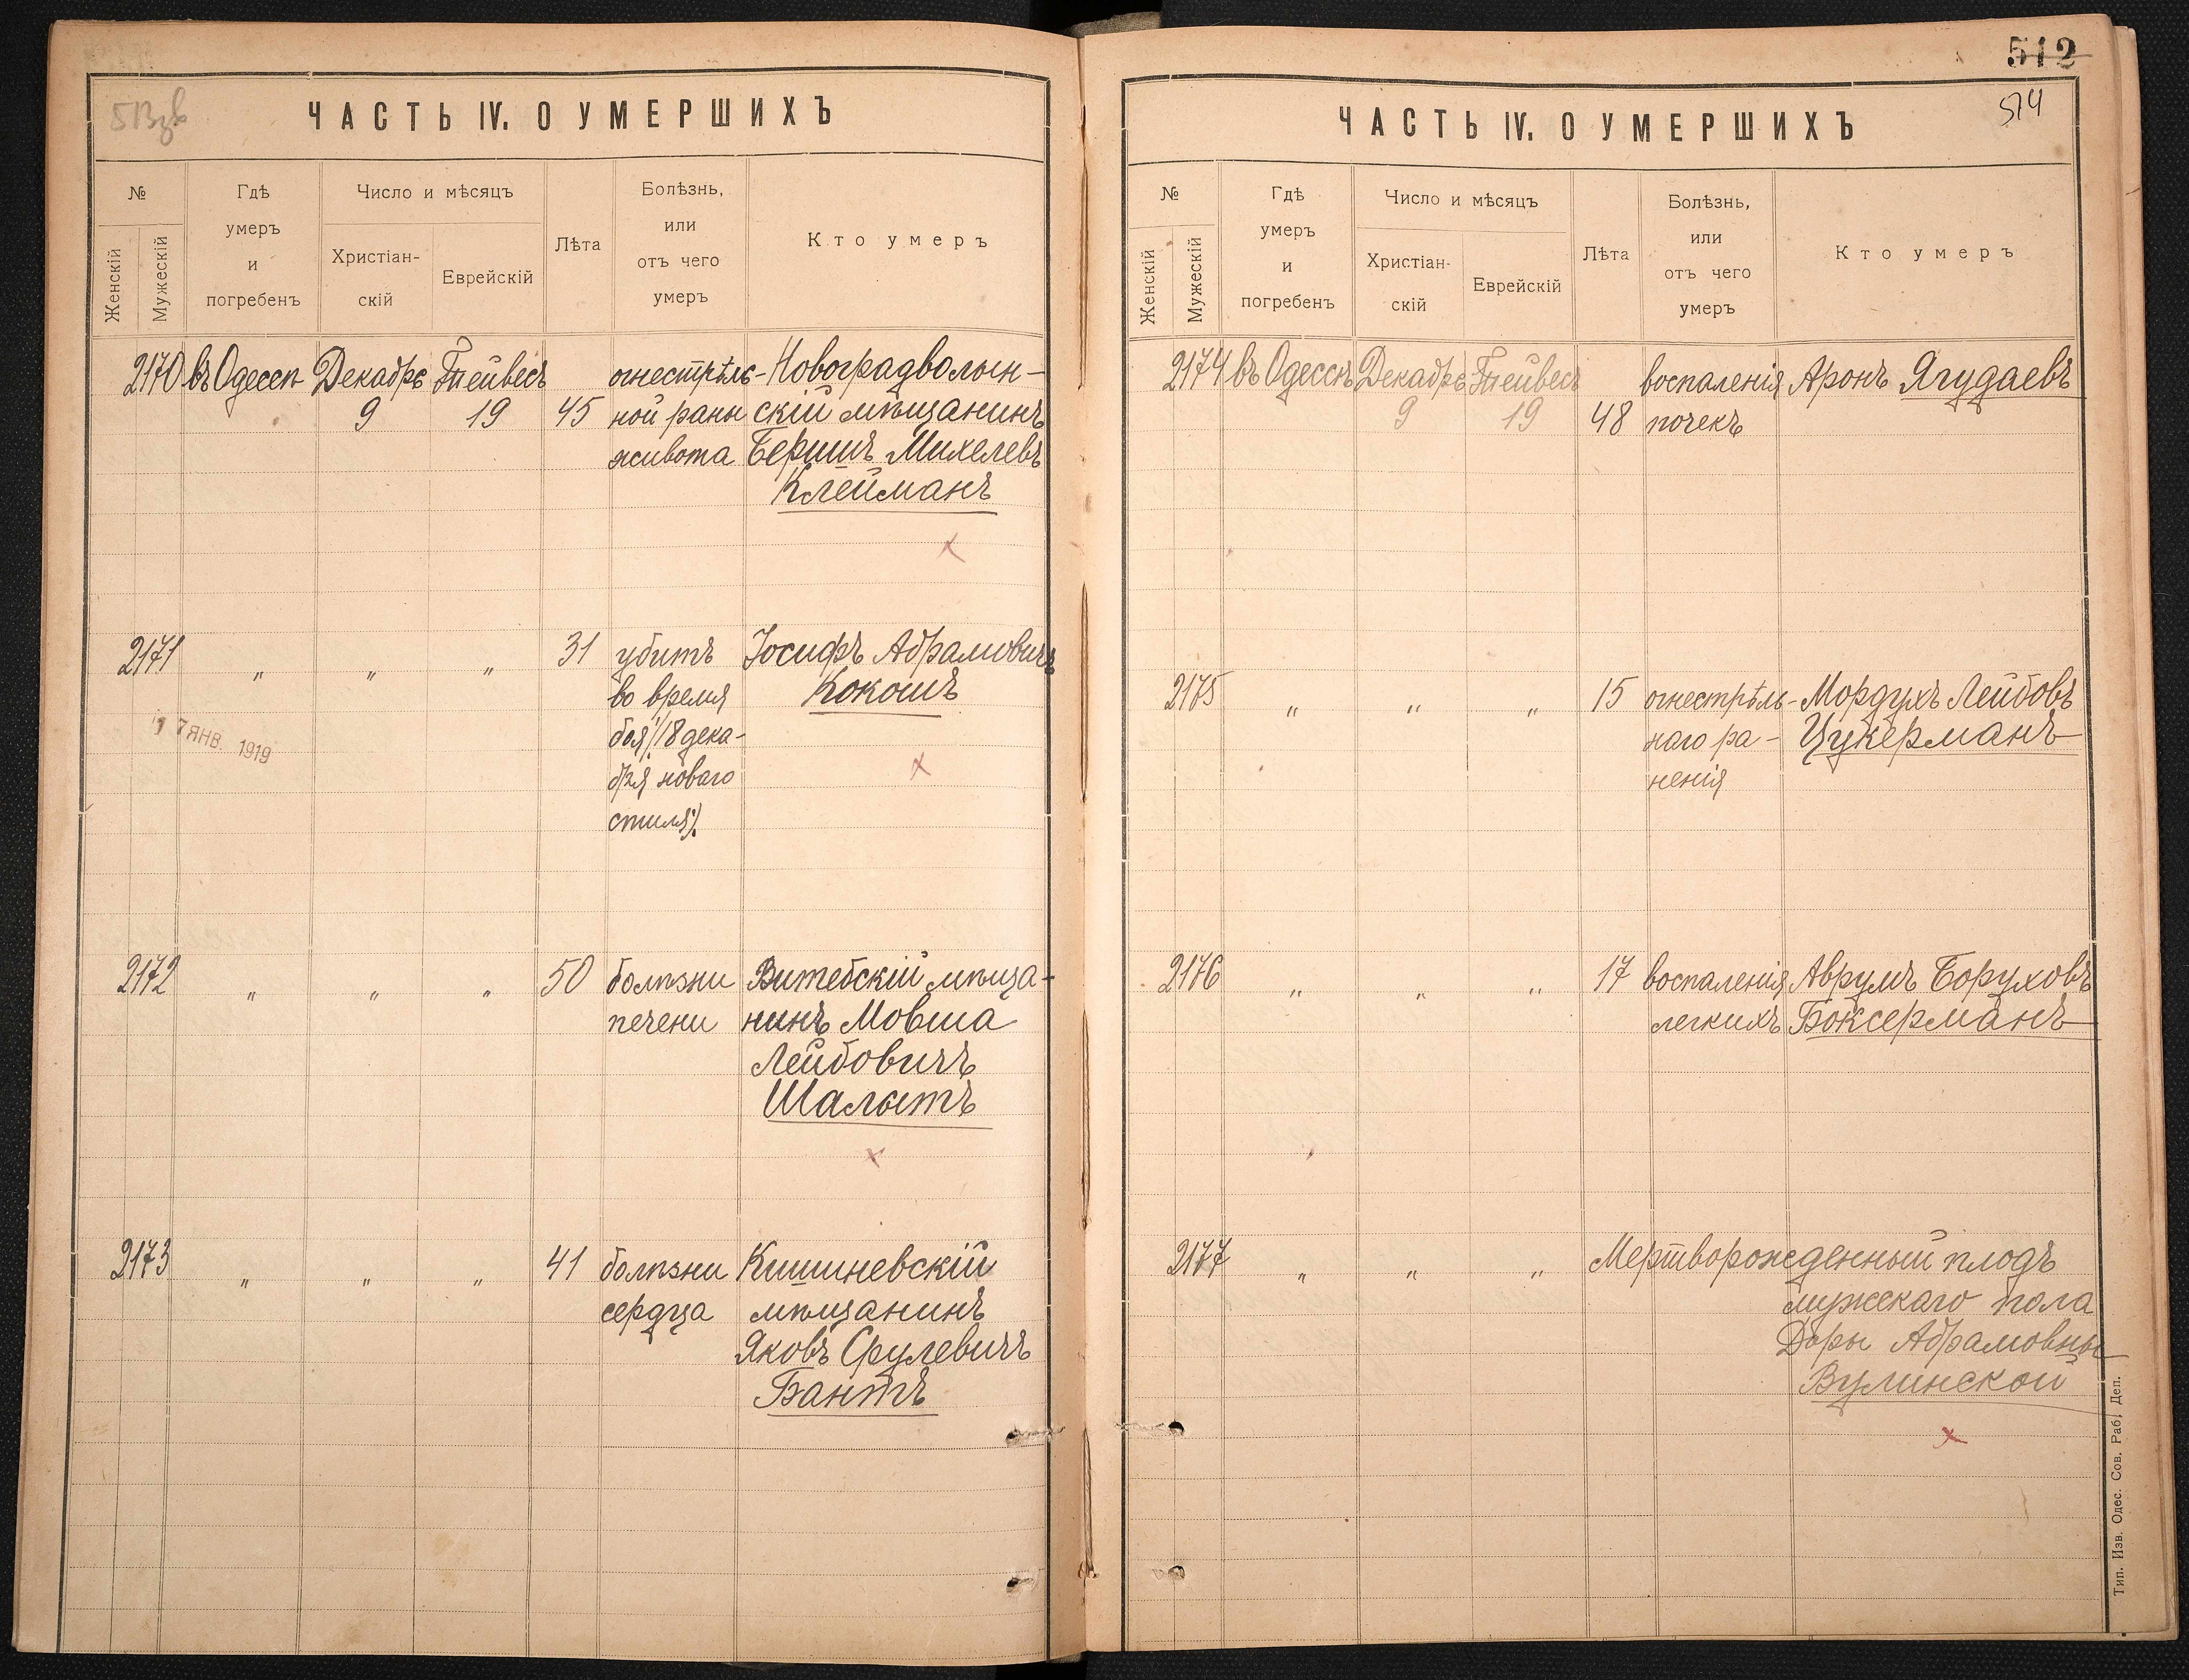 513зв
ЧАСТЬ IV. О УМЕРШИХЪ
№
Женскій
Мужескій
Гдѣ
умеръ
и
погребенъ
Число и мѣсяцъ
Христіан-
скій
Еврейскій
Лѣта
Болѣзнь,
или
отъ чего
умеръ
Кто умеръ
2170 въ Одессѣ Декабрь Тейвесъ огнестрѣль- Новоградволын-
9 19 45 ной раны скій мѣщанинъ
живота Бершъ Михелевъ
Клейманъ
х
2171 " " " 31 убитъ Іосифъ Абрамовичъ
во время Кокошъ
боя /18 дека-
бря новаго
стиля/.
х
17 ЯНВ. 1919
2172 " " " 50 болѣзни Витебскій мѣща-
печени нинъ Мовша
Лейбовичъ
Шалытъ
х
2173 " " " 41 болѣзни Кишиневскій
сердца мѣщанинъ
Яковъ Срулевичъ
Бантъ
512
514
ЧАСТЬ IV. О УМЕРШИХЪ
№
Женскій
Мужескій
Гдѣ
умеръ
и
погребенъ
Число и мѣсяцъ
Христіан-
скій
Еврейскій
Лѣта
Болѣзнь,
или
отъ чего
умеръ
Кто умеръ
2174 въ Одессѣ Декабрь Тейвесъ воспаленія Аронъ Ягудаевъ
9 19 48 почекъ
2175 " " " 15 огнестрѣль- Мордухъ Лейбовъ
наго ра- Цукерманъ
ненія
2176 " " " 17 воспаленія Аврумъ Боруховъ
легкихъ Боксерманъ
2177 " " " Мертворожденный плодъ
мужескаго пола
Доры Абрамовны
Вулинской
х
Тип. Изв. Одес. Сов. Раб. Деп.